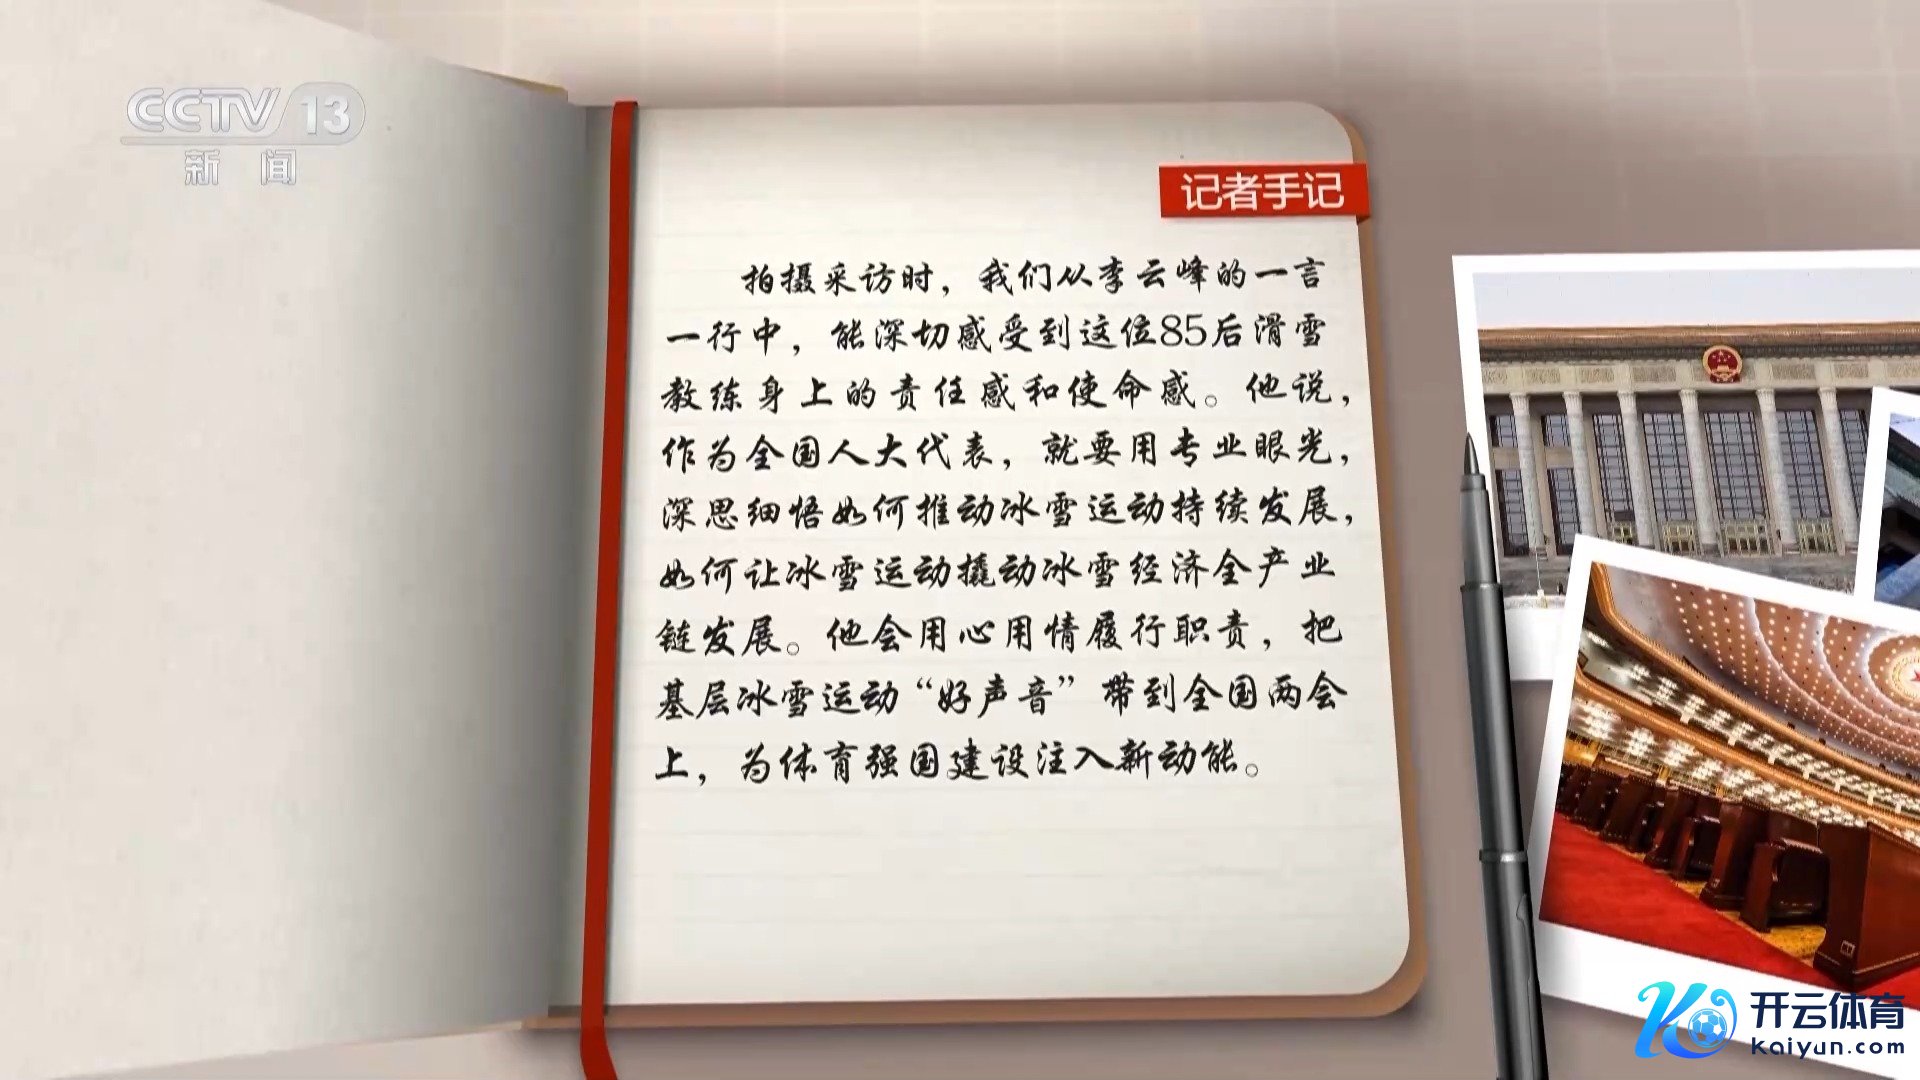 CCTV 13
新 闻
记者手记
拍摄采访时，我们从李云峰的一言
一行中，能深切感受到这位85后滑雪
教练身上的责任感和使命感。他说，
作为全国人大代表，就要用专业眼光，
深思细悟如何推动冰雪运动持续发展，
如何让冰雪运动撬动冰雪经济全产业
链发展。他会用心用情履行职责，把
基层冰雪运动“好声音”带到全国两会
上，为体育强国建设注入新动能。
开云体育
kaiyun.com